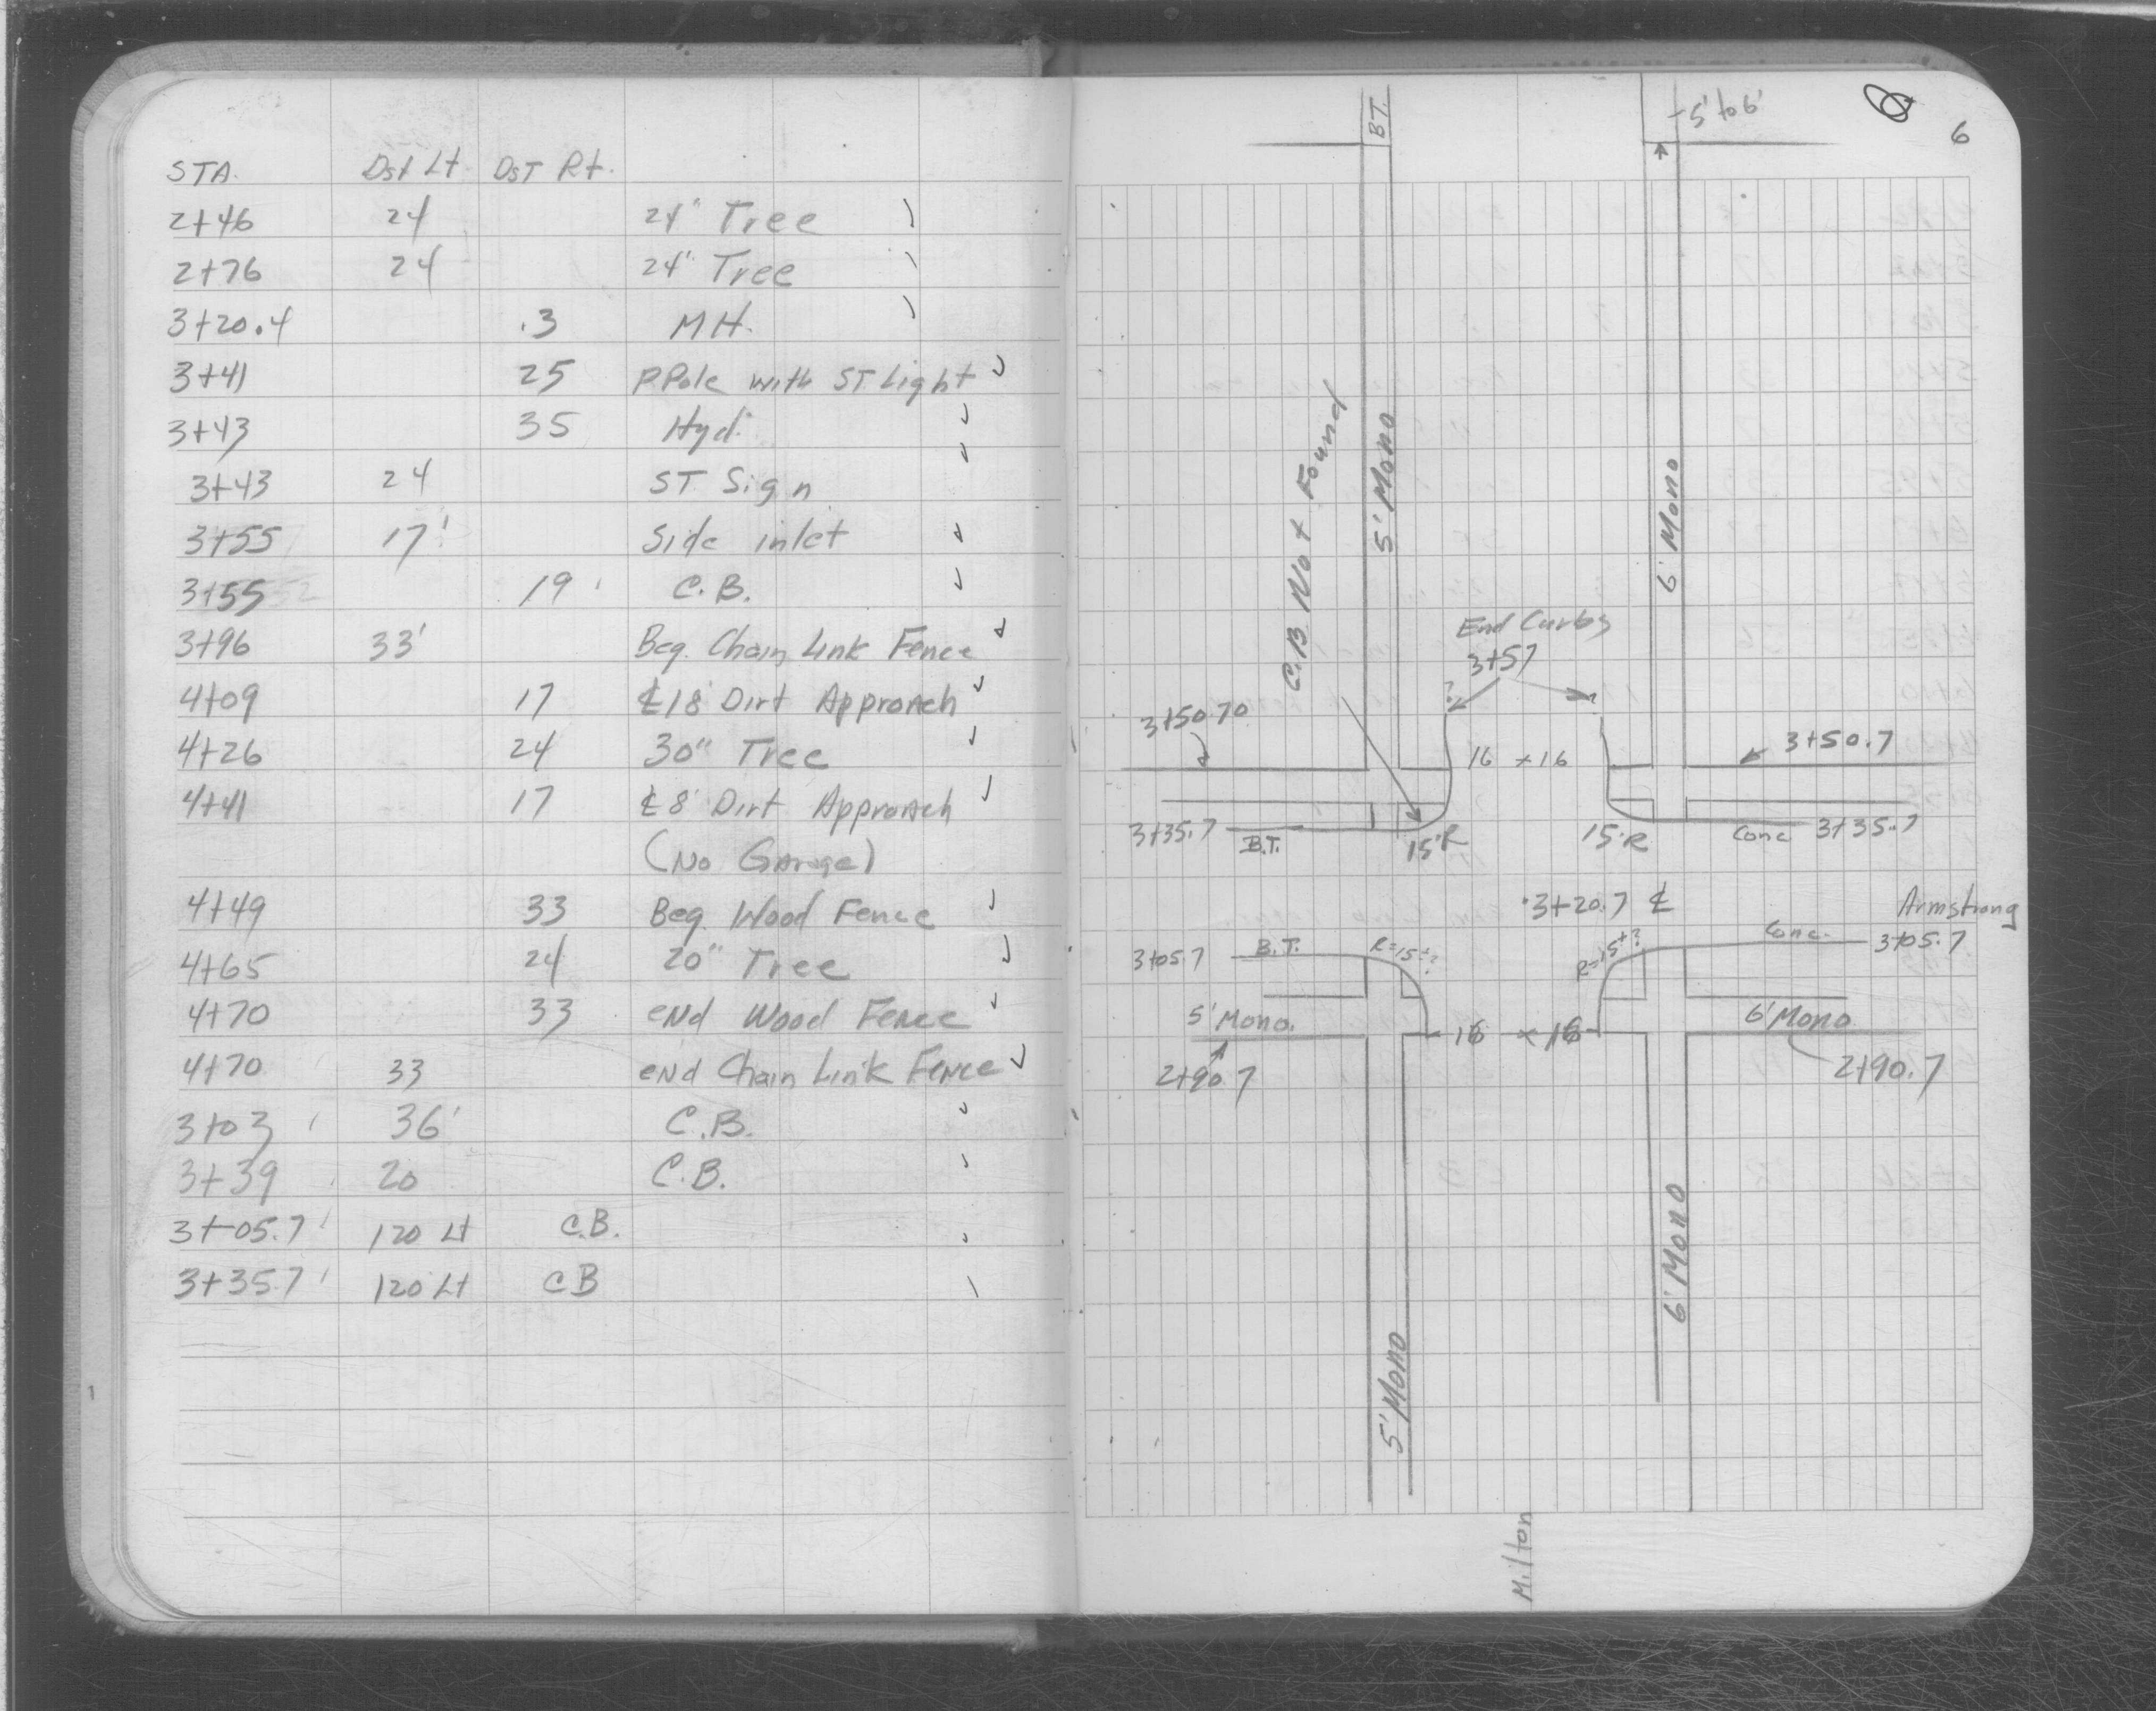 STA. Dst Lt. DST Rt.
2+46 24 24" Tree
2+76 24 24" Tree
3+20.4 .3 MH.
3+41 25 P.Pole with ST Light
3+43 35 Hyd.
3+43 24 ST. Sign
3+55 17' Side inlet
3+55 19' C.B.
3+96 33' Beg. Chain Link Fence
4+09 17 ℄ 18' Dirt Approach
4+26 24 30" Tree
4+41 17 ℄ 8' Dirt Approach
(No Garage)
4+49 33 Beg. Wood Fence
4+65 24 20" Tree
4+70 33 end Wood Fence
4+70 33 end Chain Link Fence
3+03 36' C.B.
3+39 20 C.B.
3+05.7 120 Lt C.B.
3+35.7 120 Lt CB
BT.
5' to 6'
6
C.B. Not Found
5' Mono
6' Mono
End Curbs
3+57
?
3+50.70
16 x 16
3+50.7
3+35.7 B.T.
15'R
15'R
Conc 3+35.7
3+20.7 ℄
Armstrong
3+05.7 B.T. R=15±?
R=15±? Conc. 3+05.7
5' Mono.
16 x 16
6' Mono
2+90.7
2+90.7
5' Mono
6' Mono
Milton